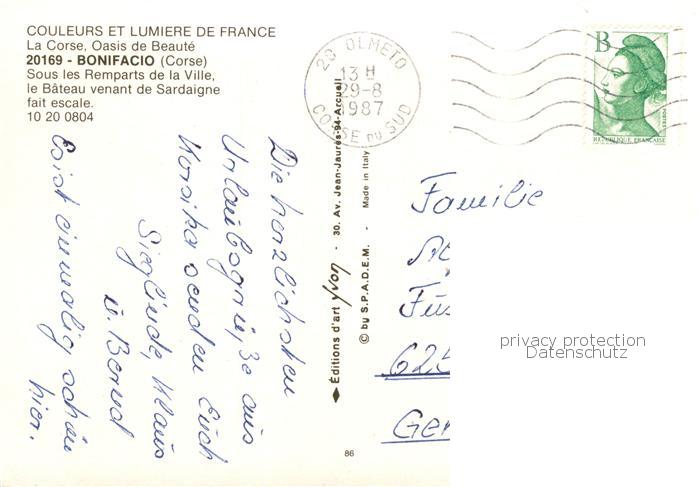 COULEURS ET LUMIERE DE FRANCE
La Corse, Oasis de Beauté
20169 - BONIFACIO (Corse)
Sous les Remparts de la Ville,
le Bâteau venant de Sardaigne
fait escale.
10 20 0804
20 OLMETO
13 H
29-8
1987
CORSE DU SUD
B
POSTES
REPUBLIQUE FRANÇAISE
Die herzlichsten
Urlaubsgrüße aus
Korsika senden Euch
Sieglinde, Klaus
u. Bernd
Es ist einmalig schön
hier.
Éditions d'art yvon - 30, Av. Jean-Jaurès-94-Arcueil
© by S.P.A.D.E.M. - Made in Italy
86
Familie
privacy protection
Datenschutz